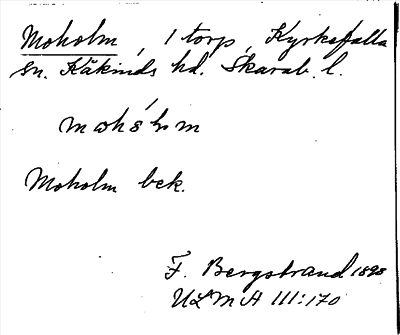 Moholm, 1 torp, Kyrkefalla
sn. Kåkinds hd. Skarab. l.
Moholm bek.
F. Bergstrand 1898
ULMA 111:170